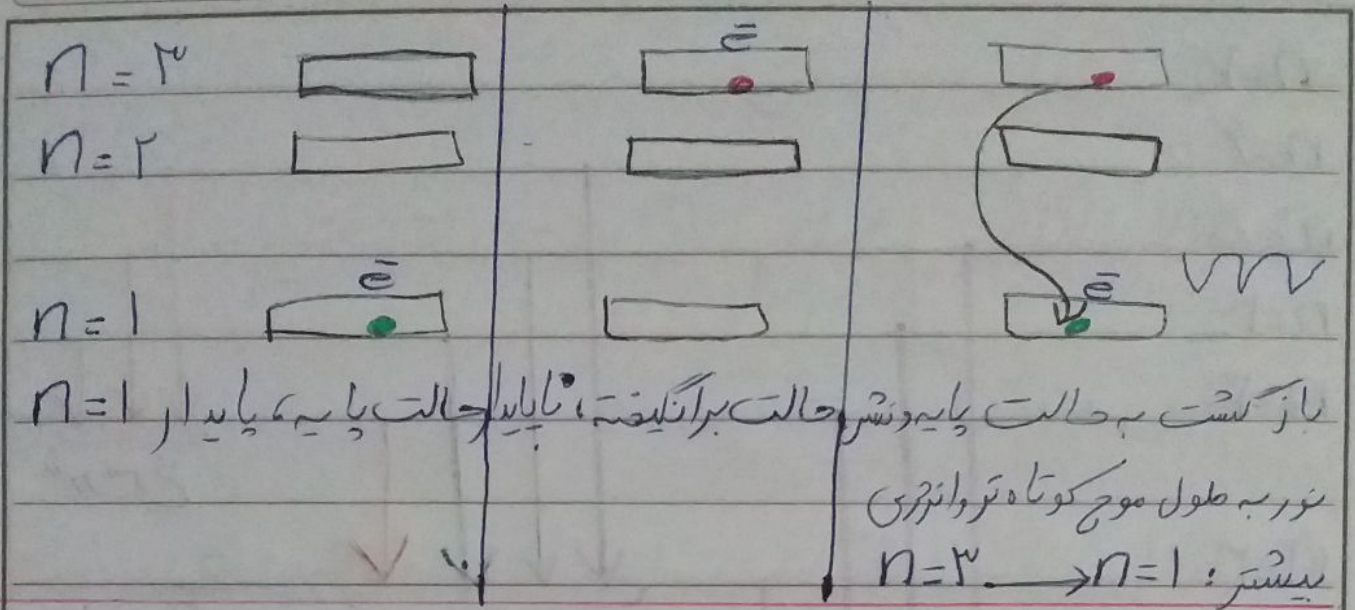 n = ۳
ē
n = ۲
n = ۱
ē
ē
n = ۱ حالت پایه، پایدار
حالت برانگیخته، ناپایدار
بازگشت به حالت پایه و نشر
نور به طول موج کوتاه تر و انرژی
بیشتر: n=۳ → n=۱